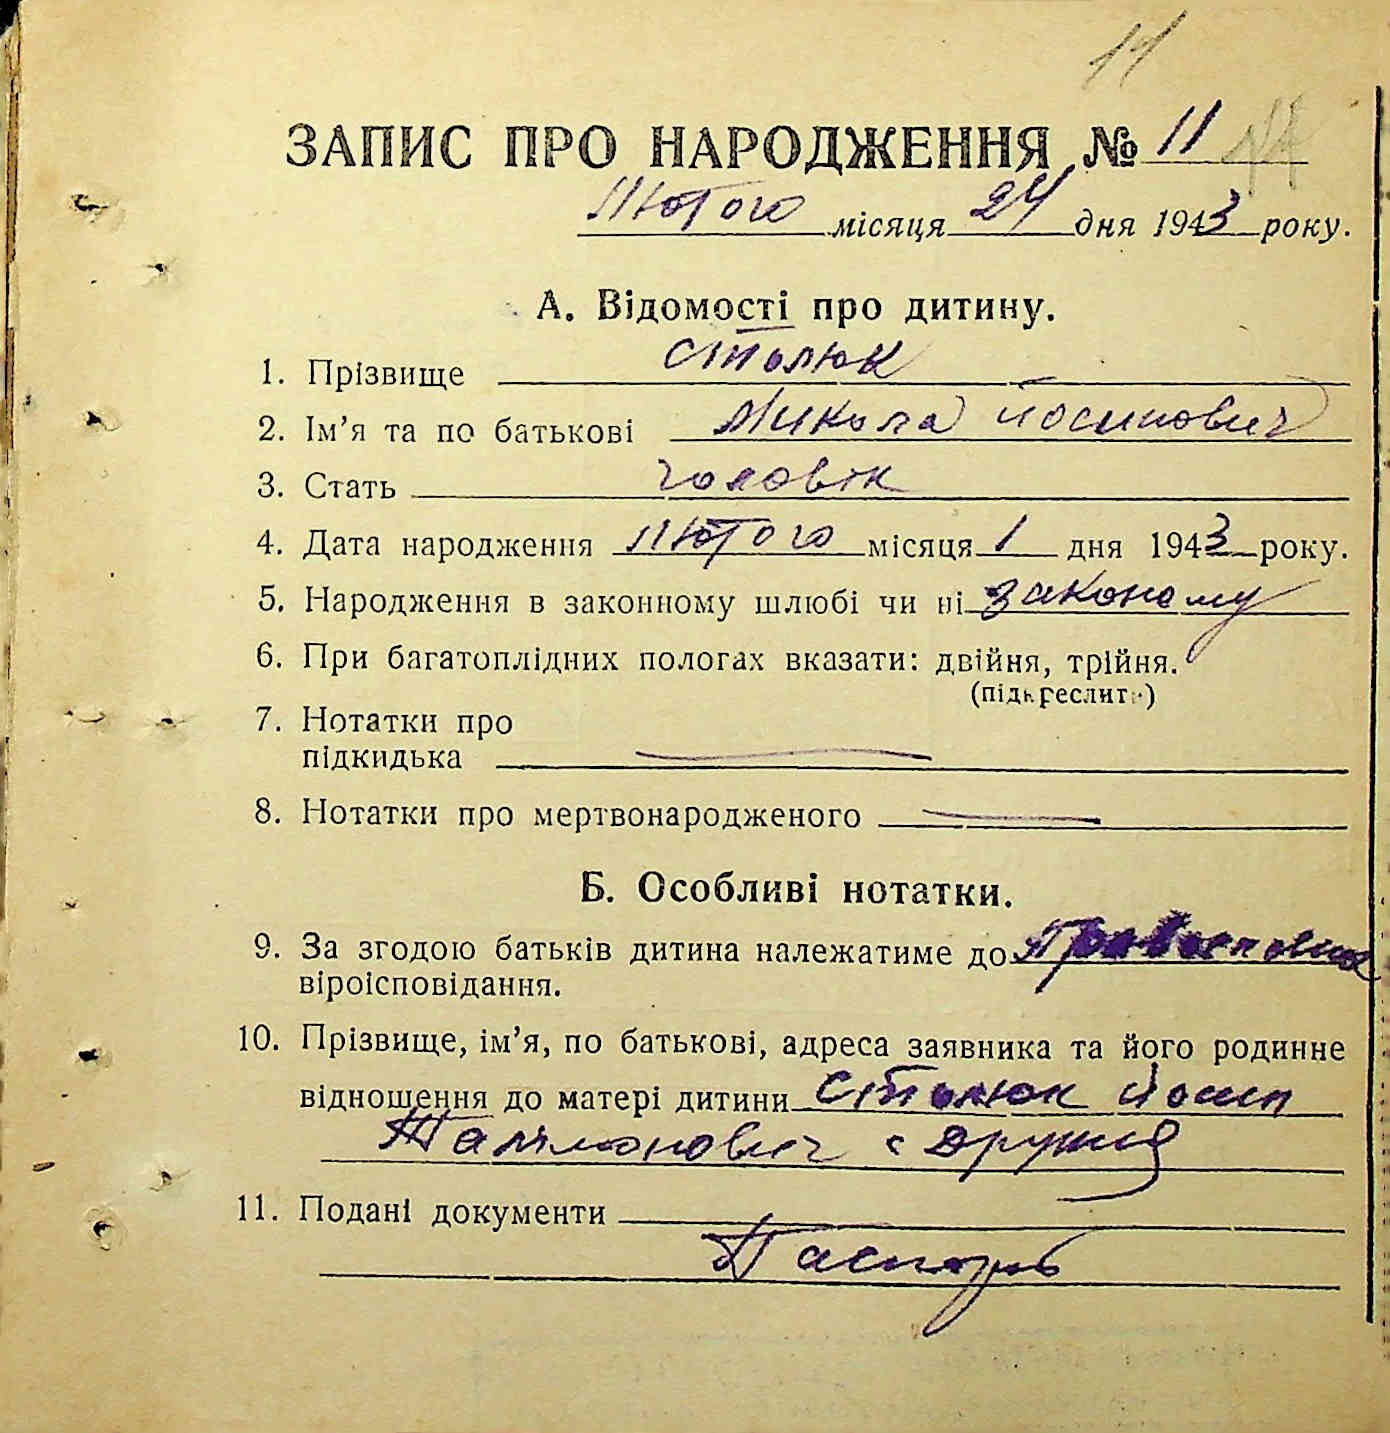 11
ЗАПИС ПРО НАРОДЖЕННЯ № 11
Лютого місяця 24 дня 1943 року.
А. Відомості про дитину.
1. Прізвище Столюк
2. Ім’я та по батькові Микола Йосипович
3. Стать чоловік
4. Дата народження Лютого місяця 1 дня 1943 року.
5. Народження в законному шлюбі чи ні законому
6. При багатоплідних пологах вказати: двійня, трійня.
(підкреслити)
7. Нотатки про
підкидька
8. Нотатки про мертвонародженого
Б. Особливі нотатки.
9. За згодою батьків дитина належатиме до
віроісповідання.
10. Прізвище, ім’я, по батькові, адреса заявника та його родинне
відношення до матері дитини Столюк Йосип
11. Подані документи
Паспорт